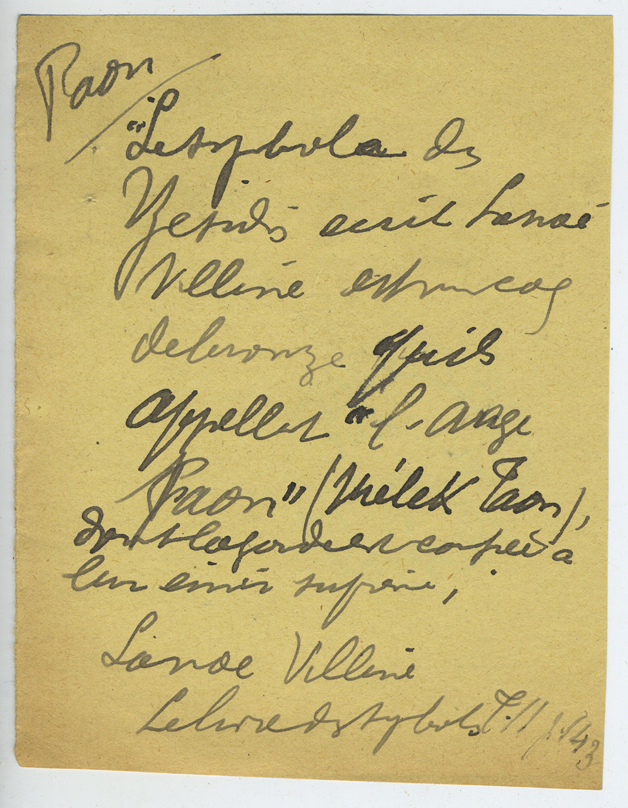 Paon
"Le symbole des
Yezidis écrit Lanoé
Villène est un coq
de bronze qu'ils
appellent "l'Ange
Paon" (Mélek Taon),
dont la garde est confiée à
leur émir suprême,
Lanoe Villène
Le livre des symboles T. II p. 143